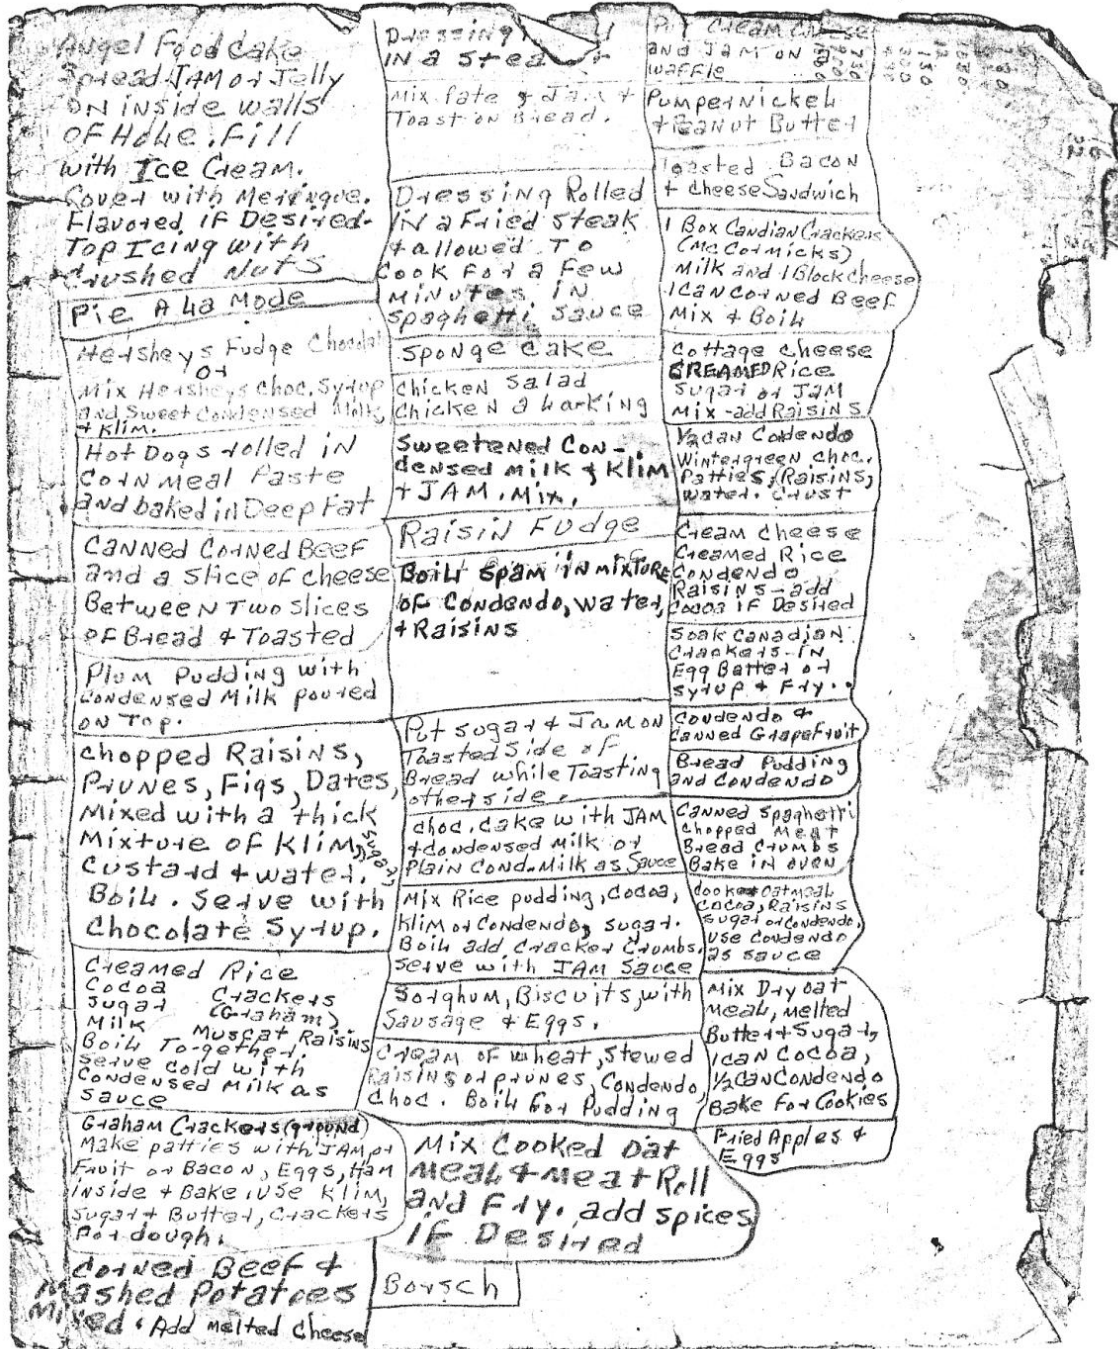 Angel Food Cake
Spread JAM or Jelly
ON inside walls
OF Hole. Fill
with Ice Cream.
Cover with Meringue.
Flavored IF Desired-
Top Icing with
Crushed Nuts
Pie A La Mode
Hersheys Fudge
or
Mix Hersheys Choc. Syrup
and Sweet Condensed Milk,
+ Klim.
Hot Dogs rolled in
Corn meal Paste
and baked in Deep Fat
Canned Corned Beef
and a Slice of cheese
Between Two slices
OF Bread & Toasted
Plum Pudding with
Condensed Milk poured
on Top.
chopped Raisins,
Prunes, Figs, Dates,
Mixed with a thick
Mixture of Klim, sugar,
Custard & water.
Boil. Serve with
Chocolate Syrup.
Creamed Rice
Cocoa
Sugar Crackers
Milk (Graham)
Muscat Raisins
Boil Together.
Serve cold with
Condensed Milk as
Sauce
Graham Crackers (ground)
Make patties with JAM or
Fruit or Bacon, Eggs, Ham
inside & Bake. Use Klim,
Sugar & Butter, Crackers
For dough.
Corned Beef &
Mashed Potatoes
Mixed. Add melted cheese
Dressing
IN a
Mix Pate & Jam +
Toast on Bread.
Dressing Rolled
IN a Fried Steak
& allowed To
Cook For a Few
MINUTES IN
Spaghetti Sauce
Sponge Cake
Chicken Salad
Chicken a La King
Sweetened Con-
densed milk & Klim
+ JAM. Mix.
Raisin Fudge
Boil Spam IN MIXTURE
OF Condendo, water,
& Raisins
Put sugar & Jam on
Toasted Side of
Bread while Toasting
other side.
choc. cake with JAM
& Condensed Milk or
Plain Cond. Milk as Sauce
Mix Rice pudding, Cocoa,
Klim or Condendo, sugar.
Boil add Cracker Crumbs.
Serve with JAM Sauce
Sorghum, Biscuits, with
Sausage & Eggs.
Cream of wheat, Stewed
Raisins or prunes, Condendo,
Choc. Boil For Pudding
Mix Cooked Oat
Meal & Meat Roll
and Fry. add spices
IF Desired
Borsch
Cream
and JAM on
waffle
Pumpernickel
& Peanut Butter
Toasted Bacon
+ cheese Sandwich
1 Box Candian Crackers
(McCormicks)
Milk and 1 Block cheese
1 Can Corned Beef
Mix & Boil
Cottage cheese
CREAMED Rice
Sugar or JAM
Mix - add Raisins
1/2 can Condendo
Wintergreen choc.
Patties, Raisins,
water. Crust
Cream cheese
Creamed Rice
Condendo
Raisins - add
Cocoa IF Desired
Soak Canadian
Crackers - IN
Egg Batter or
syrup & Fry.
Condendo &
Canned Grapefruit
Bread Pudding
and Condendo
Canned Spaghetti
chopped Meat
Bread Crumbs
Bake in oven
Cooked oatmeal
Cocoa, Raisins
sugar or Condendo,
Use Condendo
as sauce
Mix Dry oat
meal, melted
Butter & Sugar,
1 can Cocoa,
1/2 Can Condendo
Bake For Cookies
Fried Apples &
Eggs